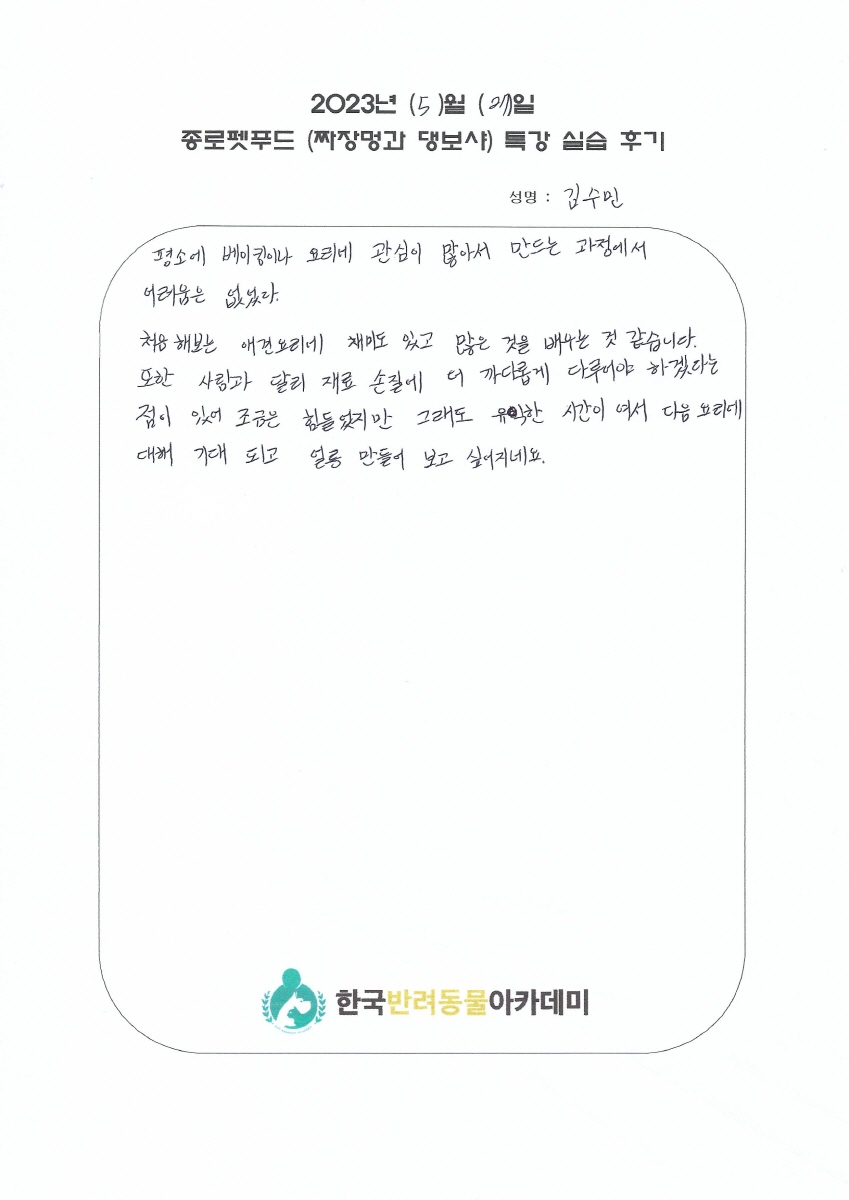 2023년 (5)월 (27)일
종로펫푸드 (짜장멍과 댕보샤) 특강 실습 후기
성명 : 김수민
평소에 베이킹이나 요리에 관심이 많아서 만드는 과정에서
어려움은 없었다.
처음 해보는 애견요리에 재미도 있고 많은 것을 배우는 것 같습니다.
또한 사람과 달리 재료 손질에 더 까다롭게 다루어야 하겠다는
점이 있어 조금은 힘들었지만 그래도 유익한 시간이 여서 다음 요리에
대해 기대 되고 얼릉 만들어 보고 싶어지네요.
한국반려동물아카데미